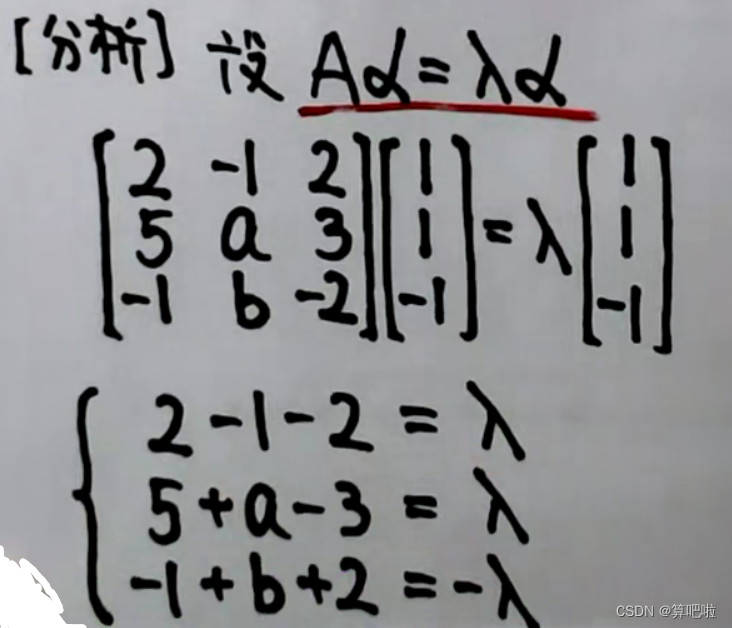 [分析] 设 Aα=λα
[2 -1 2; 5 a 3; -1 b -2][1; 1; -1]=λ[1; 1; -1]
{ 2-1-2=λ
5+a-3=λ
-1+b+2=-λ
CSDN @算吧啦